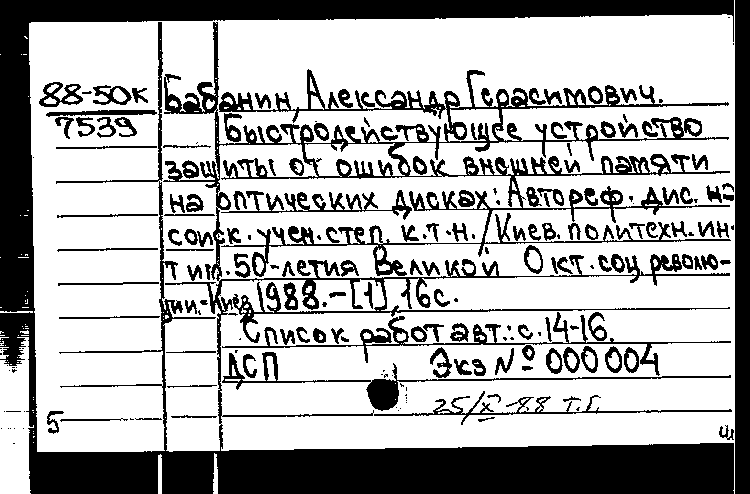 88-50к Бабанин, Александр Герасимович.
7539 Быстродействующее устройство
защиты от ошибок внешней памяти
на оптических дисках: Автореф. дис. на
соиск. учен. степ. к.т.н. / Киев. политехн. ин-
т им. 50-летия Великой Окт. соц. револю-
ции.-Киев, 1988.-[1], 16с.
Список работ авт.: с. 14-16.
ДСП Экз № 000004
25/X-88 Т.Г.
5